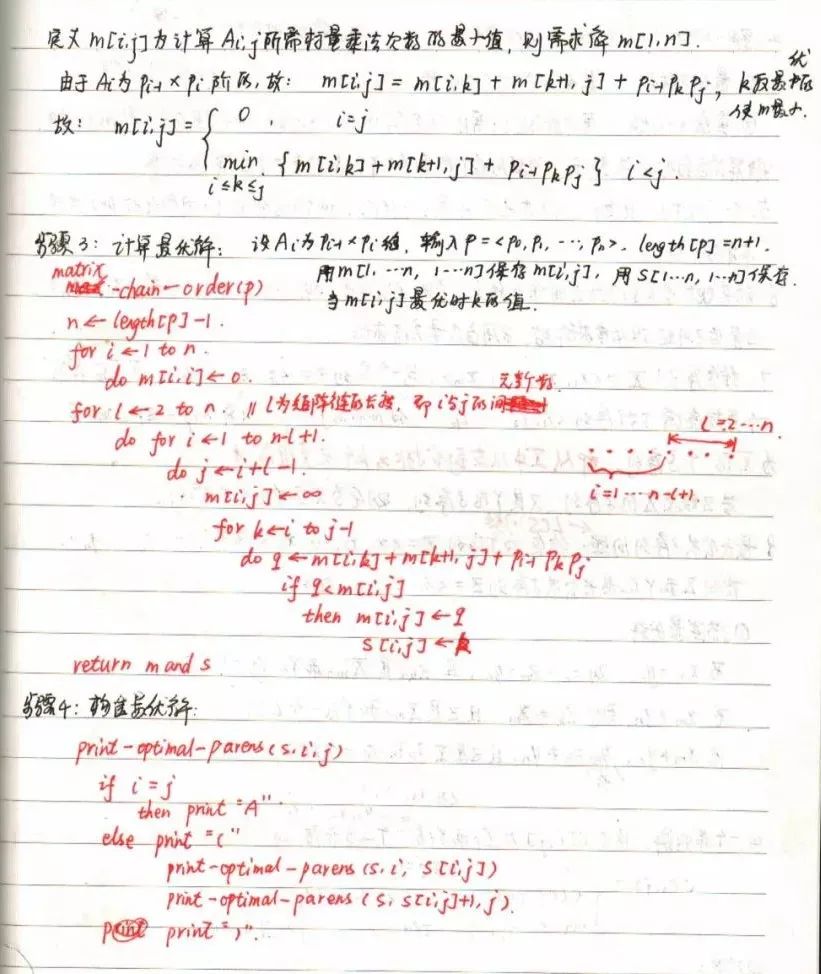 定义 m[i,j] 为计算 Ai,j 所需标量乘法次数的最小值, 则需求解 m[1,n].
由于 Ai 为 Pi-1 × Pi 阶的, 故: m[i,j] = m[i,k] + m[k+1, j] + Pi-1 Pk Pj, k 取最优的
使 m 最小.
故: m[i,j] = { 0, i=j
min i≤k≤j { m[i,k] + m[k+1,j] + Pi-1 Pk Pj } i<j.
步骤3: 计算最优解: 设 Ai 为 Pi-1 × Pi 维, 输入 P = <P0, P1, ..., Pn>. length[P] = n+1.
用 m[1...n, 1...n] 保存 m[i,j], 用 S[1...n, 1...n] 保存
当 m[i,j] 最优时 k 的值.
matrix-chain-order(p)
n ← length[P]-1
for i ← 1 to n.
do m[i,i] ← 0.
for l ← 2 to n. // l 为矩阵链的长度, 即 i 与 j 的间元素数
do for i ← 1 to n-l+1.
l = 2...n
do j ← i+l-1.
m[i,j] ← ∞
i = 1...n-l+1.
for k ← i to j-1
do q ← m[i,k] + m[k+1, j] + Pi-1 Pk Pj
if q < m[i,j]
then m[i,j] ← q
S[i,j] ← k
return m and s
步骤4: 构造最优解:
print-optimal-parens(s, i, j)
if i = j
then print "A"
else print "("
print-optimal-parens(s, i, s[i,j])
print-optimal-parens(s, s[i,j]+1, j).
print print ")".